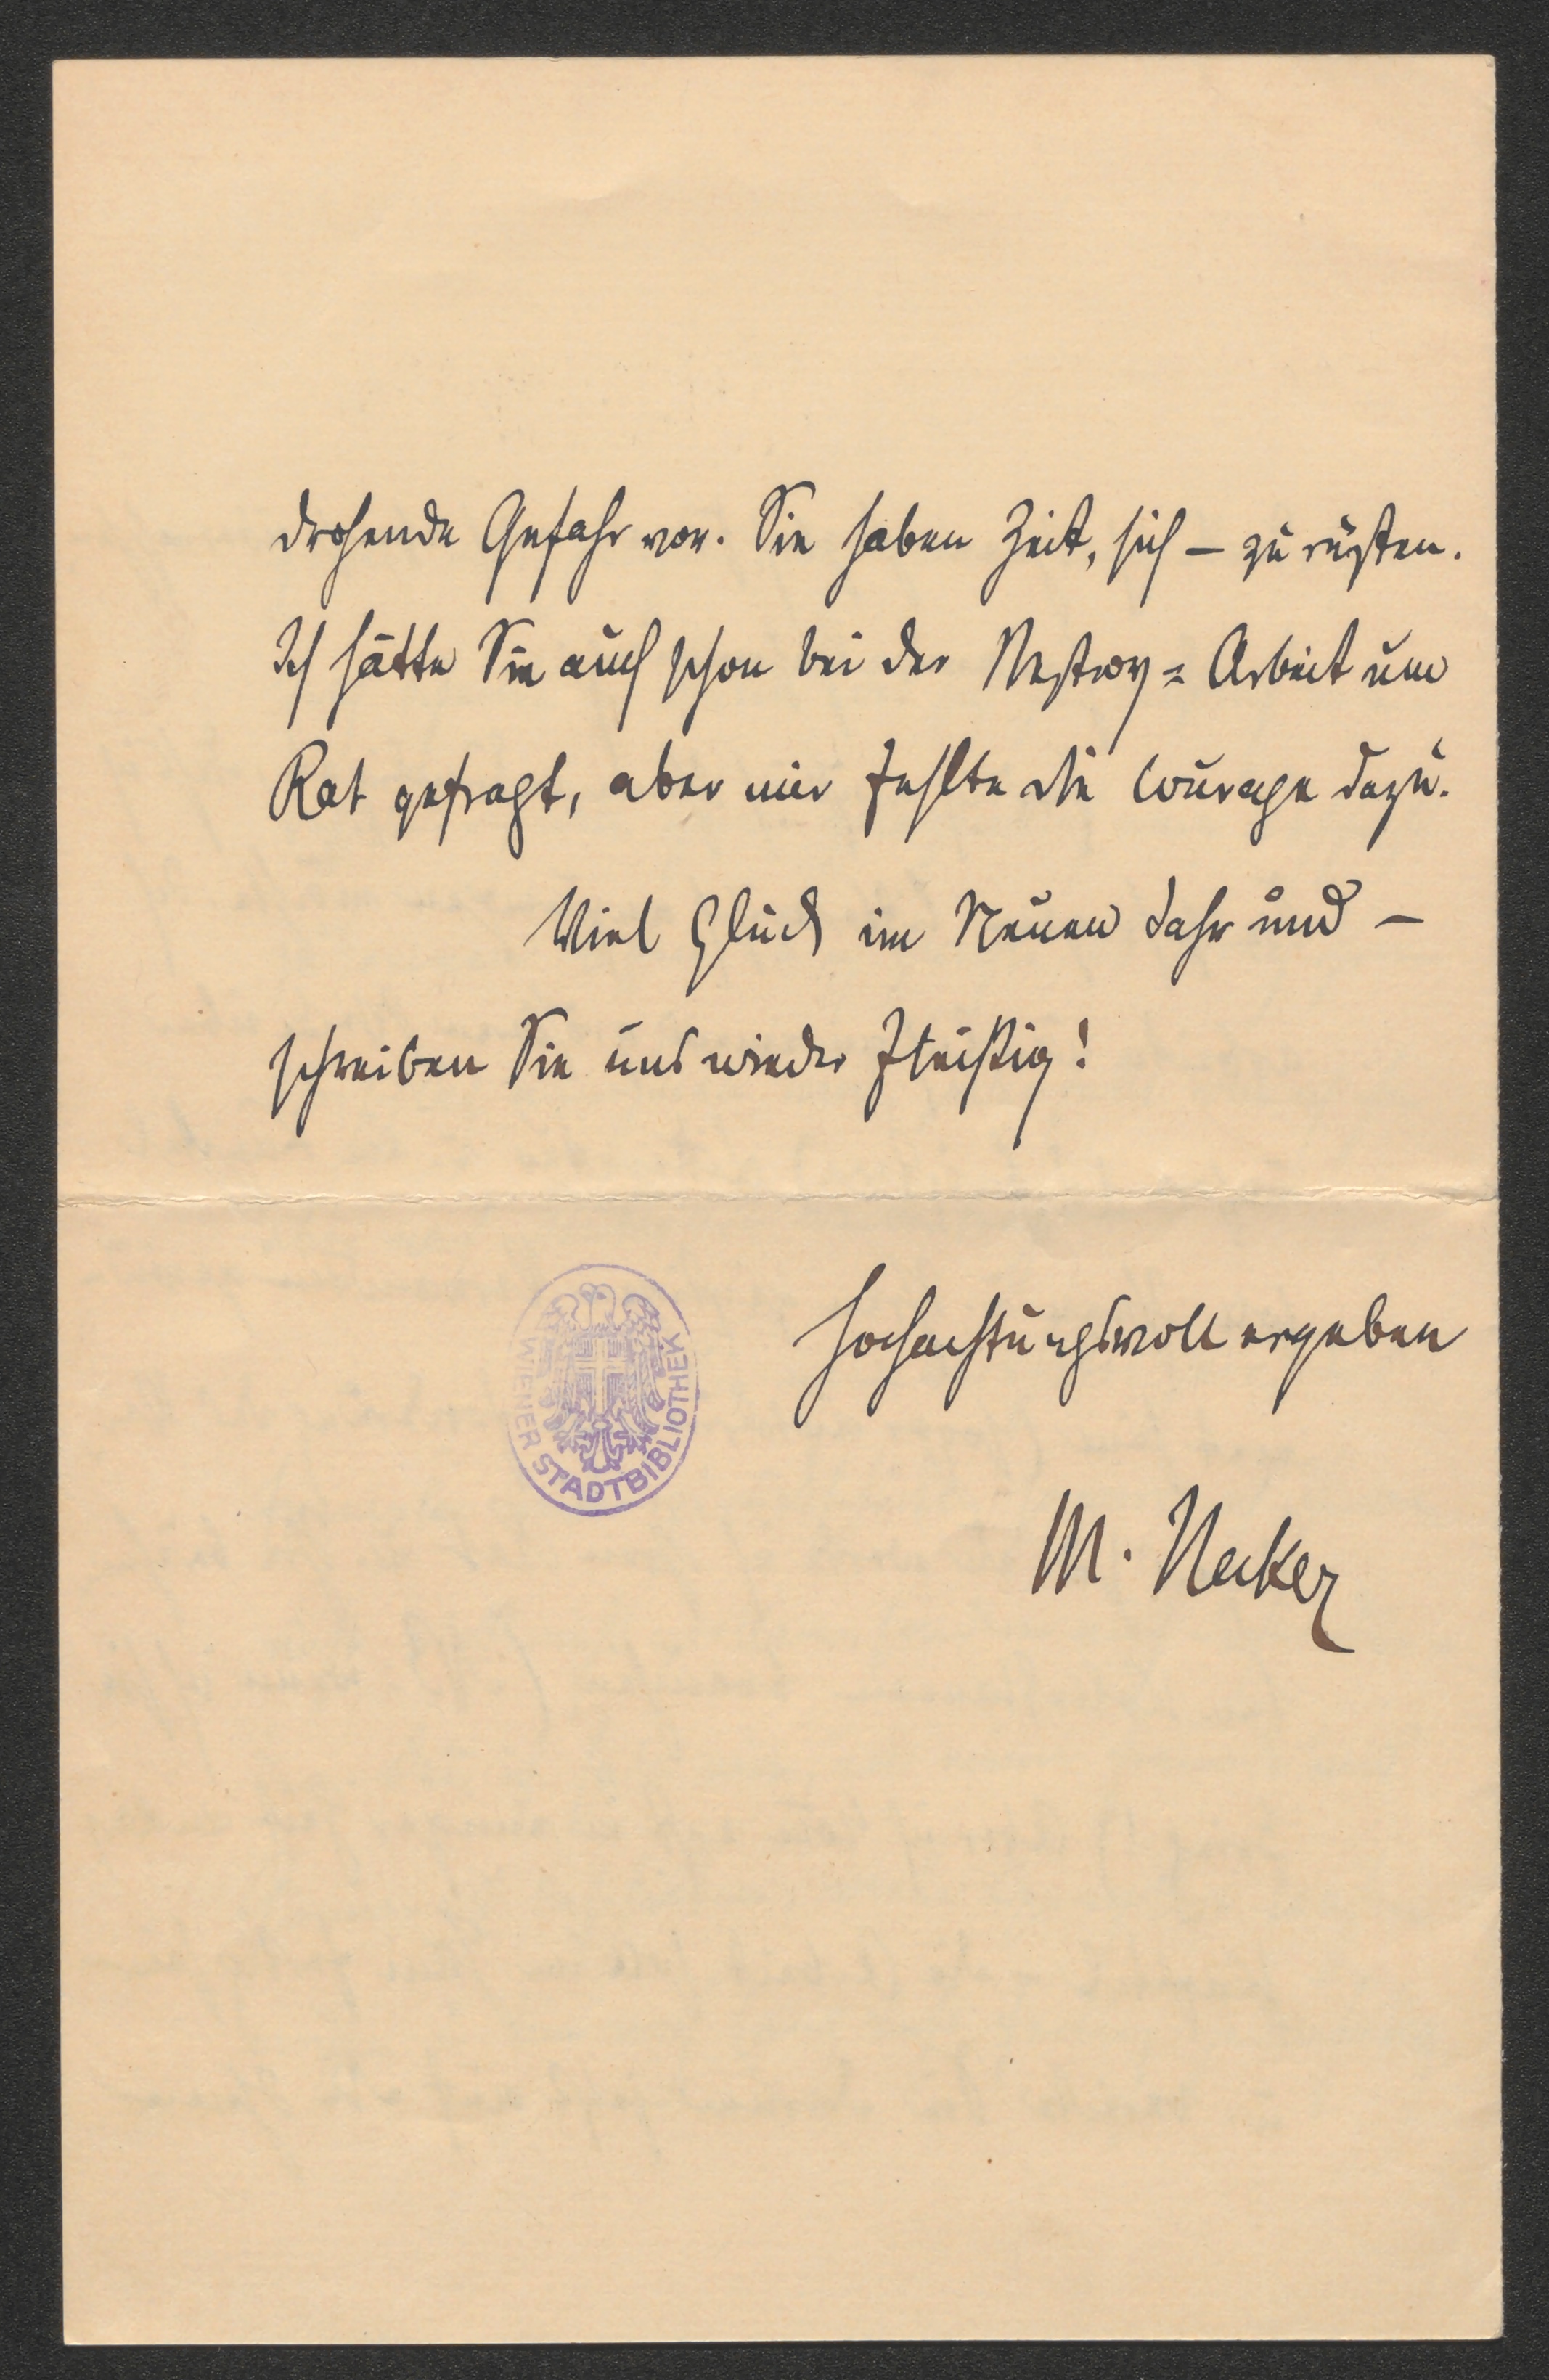 drohende Gefahr vor. Sie haben Zeit, sich – zu rüsten.
Ich hätte Sie auch schon bei der Nestroy= Arbeit um
Rat gefragt, aber mir fehlte die Courage dazu.
Viel Glück im Neuen Jahr und –
schreiben Sie uns wieder fleißig!
Hochachtungsvoll ergeben
M. Necker
WIENER STADTBIBLIOTHEK